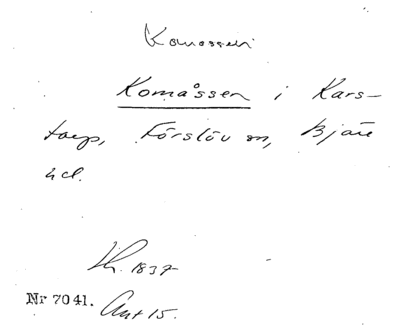 Komossen
Komåssen i Kars-
torp, Förslöv sn, Bjäre
hd.
Lh. 1837
Nr 7041. Akt 15.